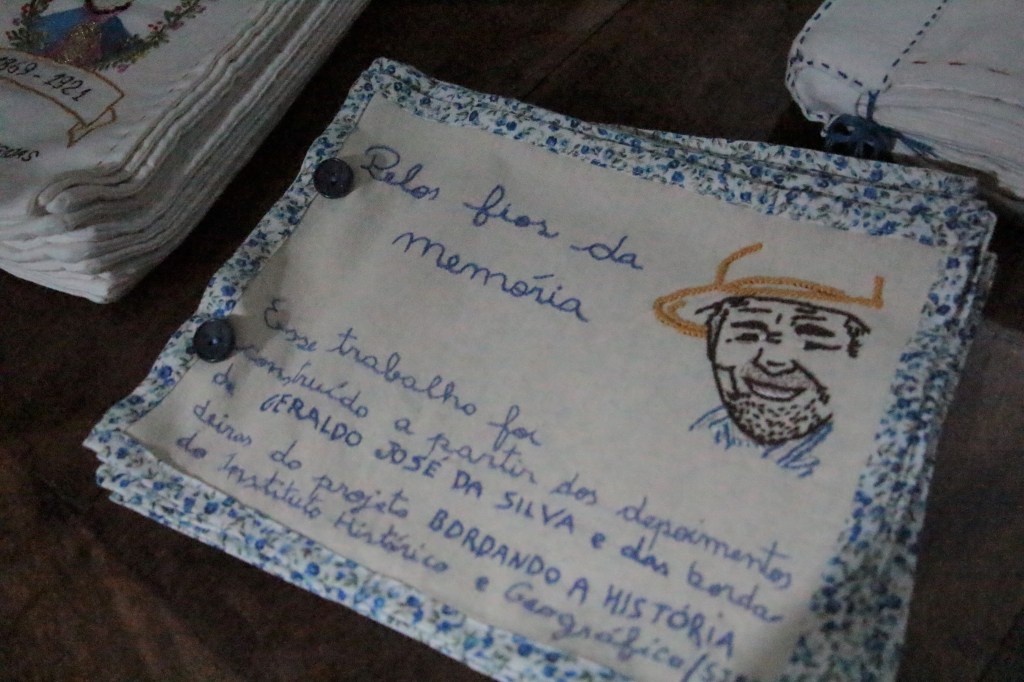 1969-1921
Pelos fios da
memória
Esse trabalho foi
construído a partir dos depoimentos
de GERALDO JOSÉ DA SILVA e das borda-
deiras do projeto BORDANDO A HISTÓRIA
do Instituto Histórico e Geográfico/